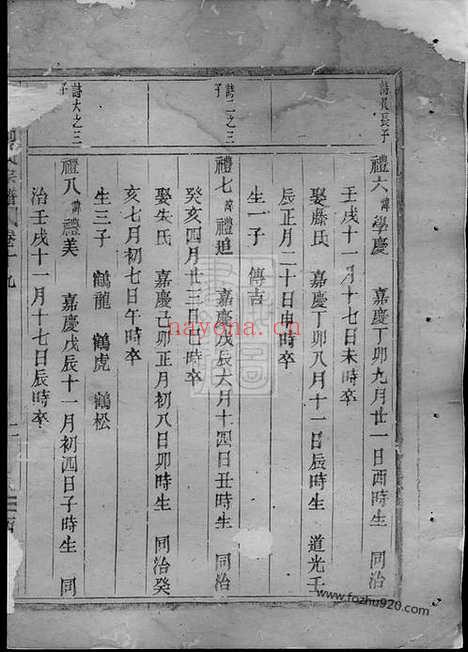 詩長長子
禮六 諱 學慶 嘉慶丁卯九月廿一日酉時生 同治
壬戌十一月十七日未時卒
娶滕氏 嘉慶丁卯八月十一日辰時生 道光壬
辰正月二十日申時卒
生一子 傳吉
詩二之三
子
禮七 諱 禮進 嘉慶戊辰六月十四日丑時生 同治
癸亥四月廿三日巳時卒
娶朱氏 嘉慶己卯正月初八日卯時生 同治癸
亥七月初七日午時卒
生三子 鶴龍 鶴虎 鶴松
詩大之三
子
禮八 諱 禮美 嘉慶戊辰十一月初四日子時生 同
治壬戌十一月十七日辰時卒
宗譜 卷十九
nayona.cn
www.fozhu920.com